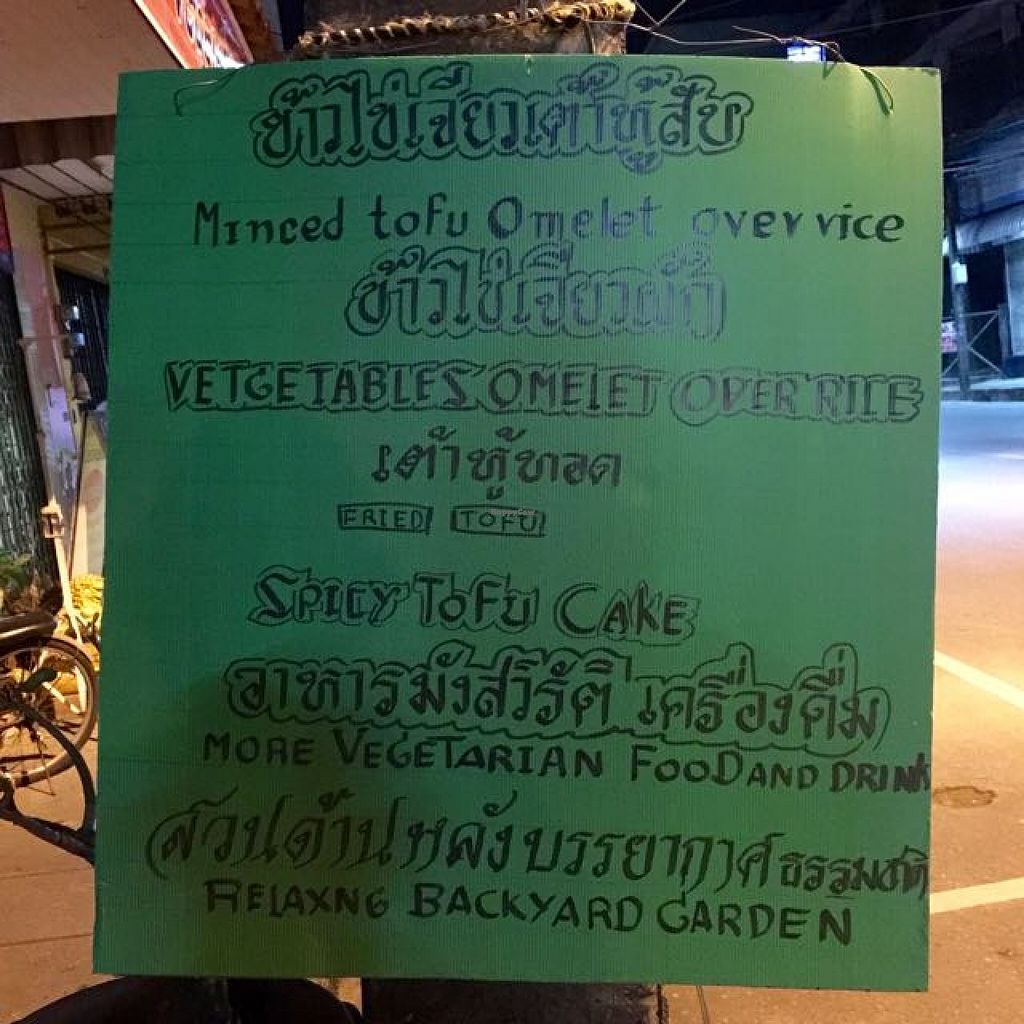 ข้าวไข่เจียวเต้าหู้สับ
Minced tofu Omelet over rice
ข้าวไข่เจียวผัก
VETGETABLES OMELET OVER RICE
เต้าหู้ทอด
FRIED TOFU
SPICY TOFU CAKE
อาหารมังสวิรัติ เครื่องดื่ม
MORE VEGETARIAN FOOD AND DRINK
สวนด้านหลังบรรยากาศธรรมชาติ
RELAXNG BACKYARD GARDEN